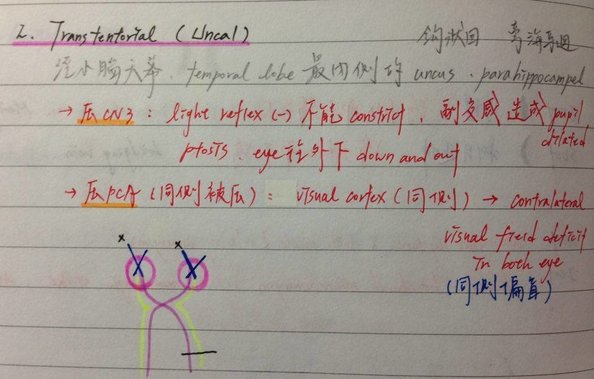 2. Transtentorial (Uncal) 鈎狀回 旁海馬迴
從小腦天幕. temporal lobe 最內側的 uncus. parahippocampel
→ 压CN3 : light reflex (-) 不能 constrict, 副交感造成 pupil dilated
ptosis. eye往外下 down and out
→ 压PCA (同側被压) : visual cortex (同側) → contralateral
visual field deficit
in both eye
(同側偏盲)
x x